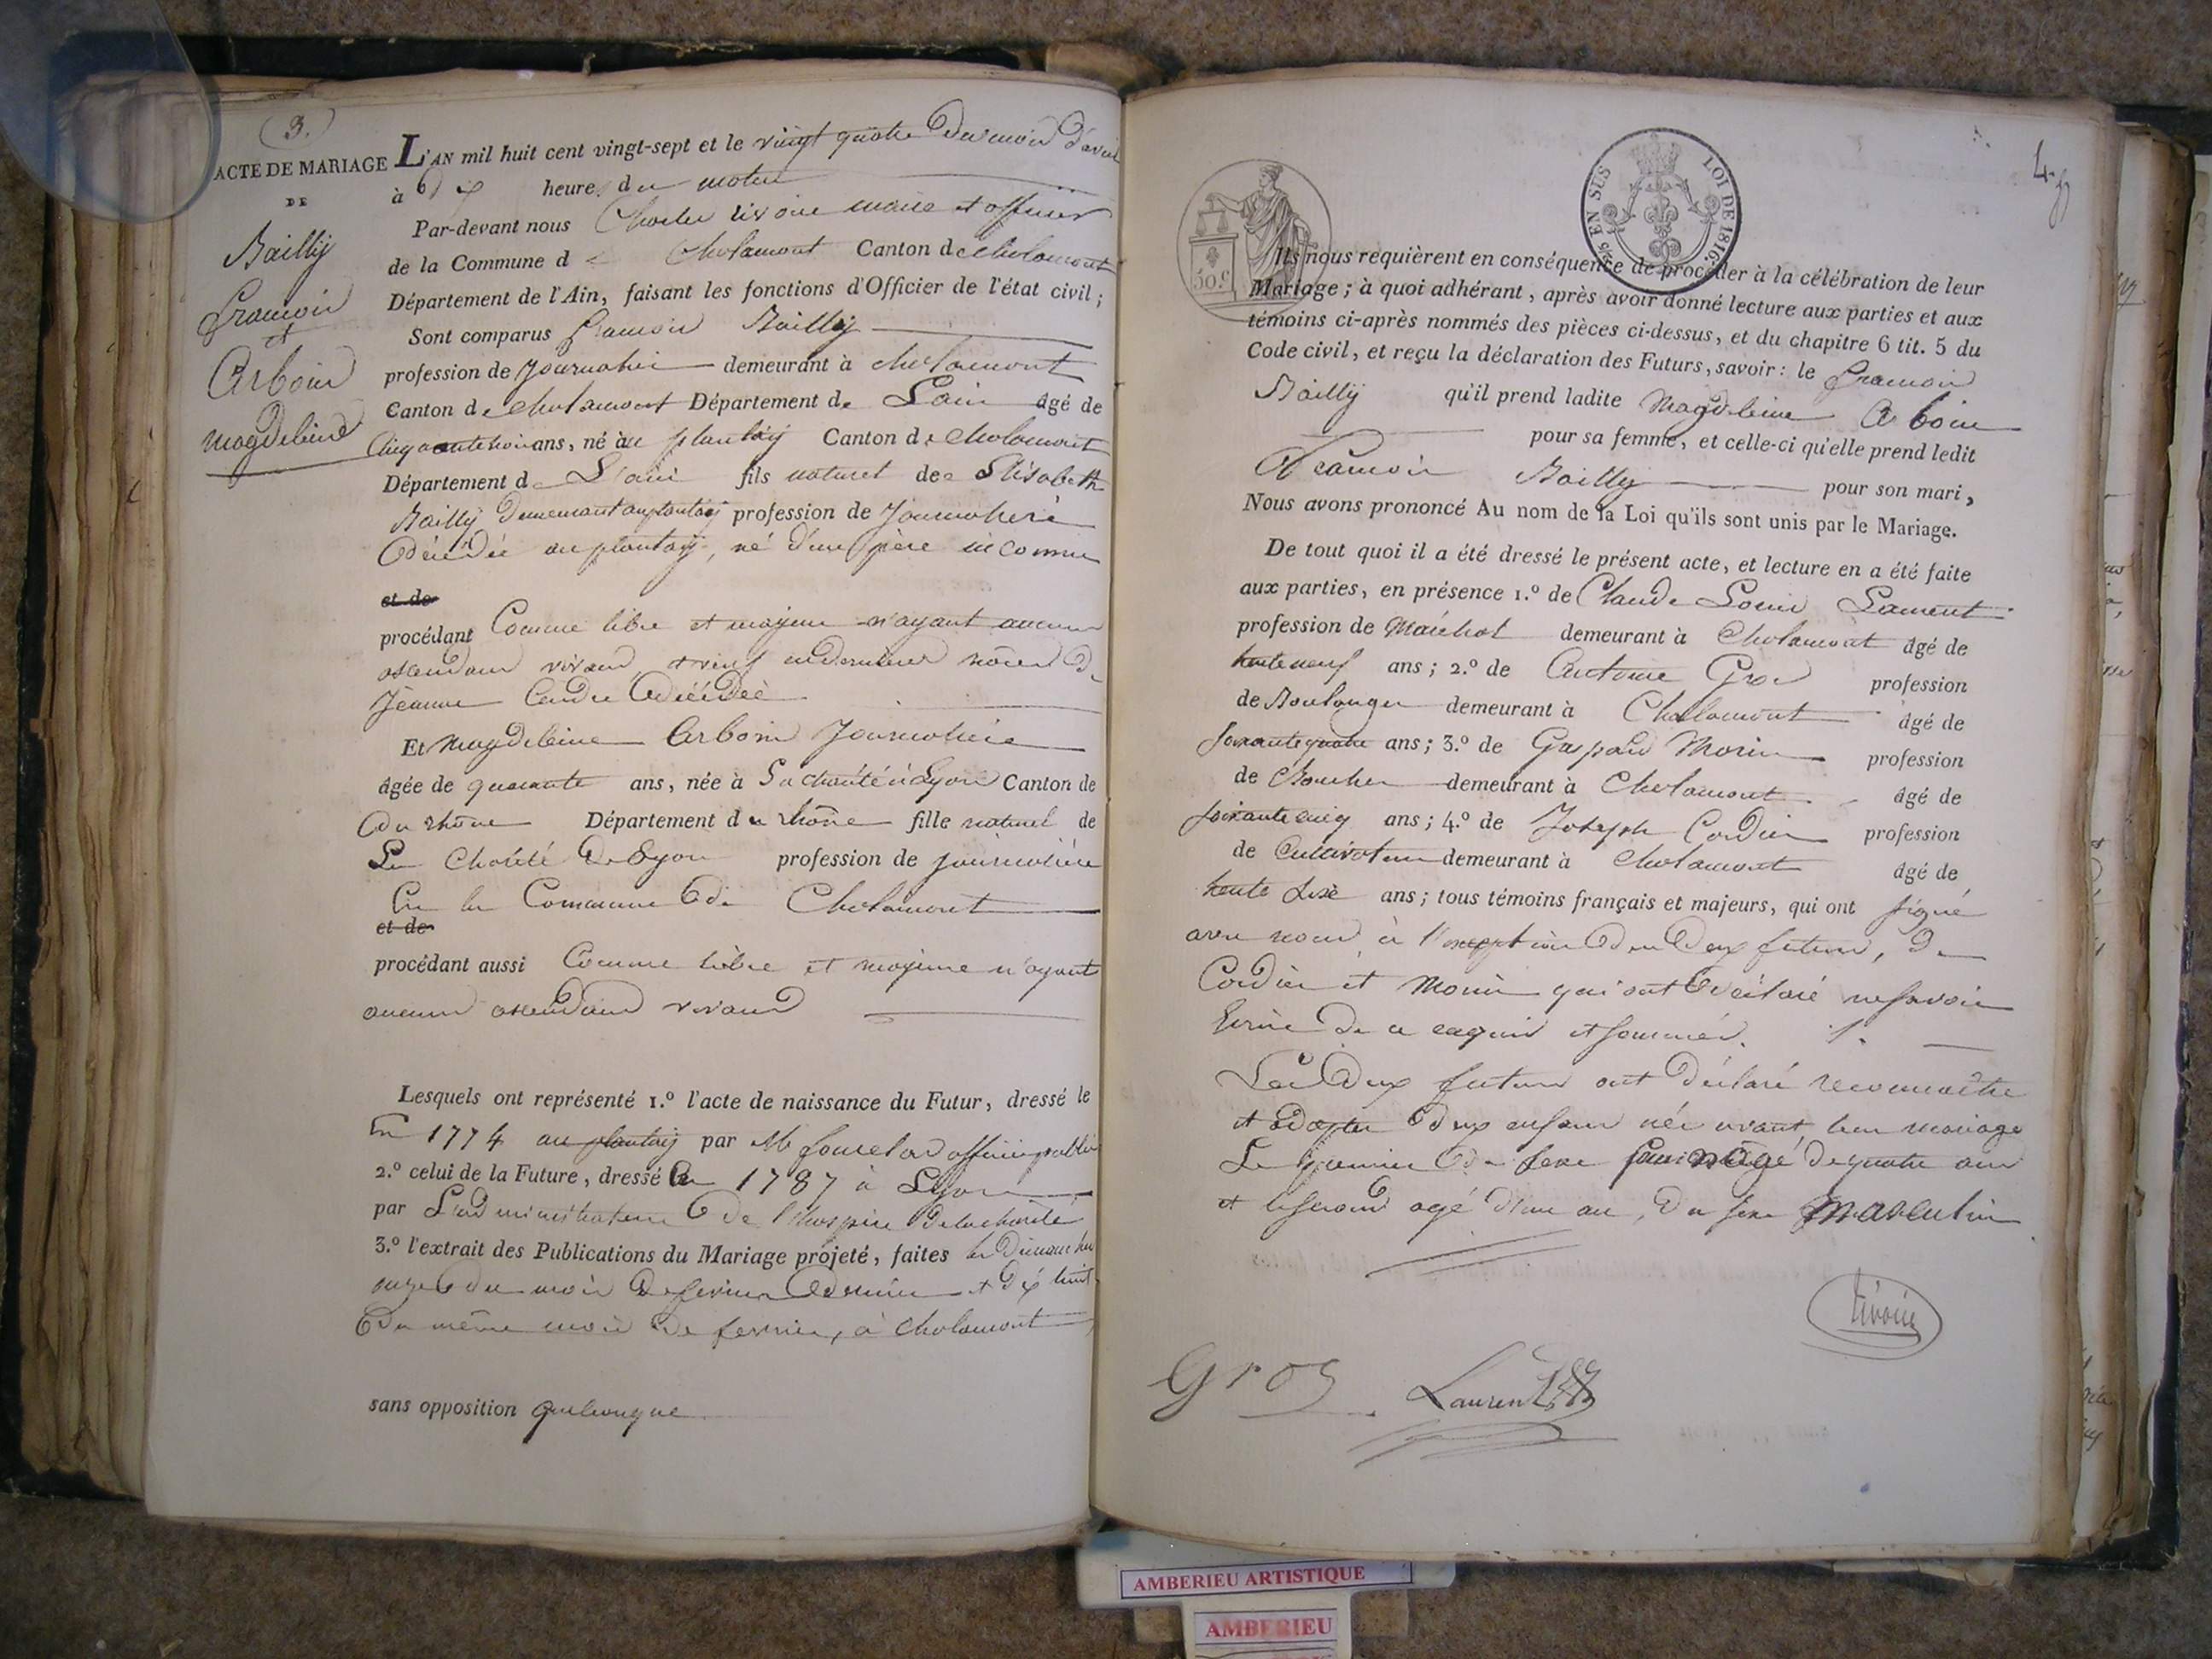 3.
ACTE DE MARIAGE
DE
Bailly
francois
et
Arboin
magdeleine
L'AN mil huit cent vingt-sept et le vingt quatre du mois d'avril
à dix heures du matin
Par-devant nous Charles livoire maire et officier
de la Commune de Chalamont Canton de Chalamont
Département de l'Ain, faisant les fonctions d'Officier de l'état civil;
Sont comparus francois Bailly
profession de Journalier demeurant à chalamont
Canton de chalamont Département de Lain âgé de
ans, né au plantay Canton de chalamont
Département de L'ain fils naturel de Elisabeth
Bailly demeurant au plantay profession de Journaliere
décédée au plantay, né d'un père inconnu
et de
procédant Comme libre et majeur n'ayant aucun
ascendans vivans et veuf en dernieres noces de
Jeanne décédée
Et magdeleine Arboin Journaliere
âgée de quarante ans, née à La charité à Lyon Canton de
du rhône Département du rhône fille naturel de
La charité de Lyon profession de journalière
En la Commune de Chalamont
et de
procédant aussi Comme libre et majeure n'ayant
aucuns ascendans vivans
Lesquels ont représenté 1.º l'acte de naissance du Futur, dressé le
En 1774 au plantay par Mr officier public
2.º celui de la Future, dressé En 1787 à Lyon
par L'administration de l'hospice de la charité
3.º l'extrait des Publications du Mariage projeté, faites les Dimanches
onze du mois de fevrier dernier et dix huit
du même mois de fevrier, à chalamont
sans opposition quelconque
4.
5/6 EN SUS LOI DE 1816.
50.c
Ils nous requièrent en conséquence de procéder à la célébration de leur
Mariage; à quoi adhérant, après avoir donné lecture aux parties et aux
témoins ci-après nommés des pièces ci-dessus, et du chapitre 6 tit. 5 du
Code civil, et reçu la déclaration des Futurs, savoir: le francois
Bailly qu'il prend ladite Magdeleine Arboin
pour sa femme, et celle-ci qu'elle prend ledit
francois Bailly pour son mari,
Nous avons prononcé Au nom de la Loi qu'ils sont unis par le Mariage.
De tout quoi il a été dressé le présent acte, et lecture en a été faite
aux parties, en présence 1.º de Claude Louis Laurent
profession de Maréchal demeurant à Chalamont âgé de
trente neuf ans; 2.º de Antoine Gros profession
de Boulanger demeurant à Chalamont âgé de
soixante quatre ans; 3.º de Gaspard Morin profession
de Boucher demeurant à Chalamont âgé de
soixante cinq ans; 4.º de Joseph Cordier profession
de Cultivateur demeurant à chalamont âgé de
trente ans; tous témoins français et majeurs, qui ont signé
avec nous, à l'exception des deux futurs, de
Cordier et Morin qui ont déclaré ne savoir
Ecrire de ce enquis et sommés.
Les deux futurs ont déclaré reconnaitre
et adopter deux enfans nés avant leur mariage
Le premier du sexe feminin agé de quatre ans
et le second agé d'un an, du sexe masculin
livoire
Gros
Laurent
AMBERIEU ARTISTIQUE
AMBERIEU